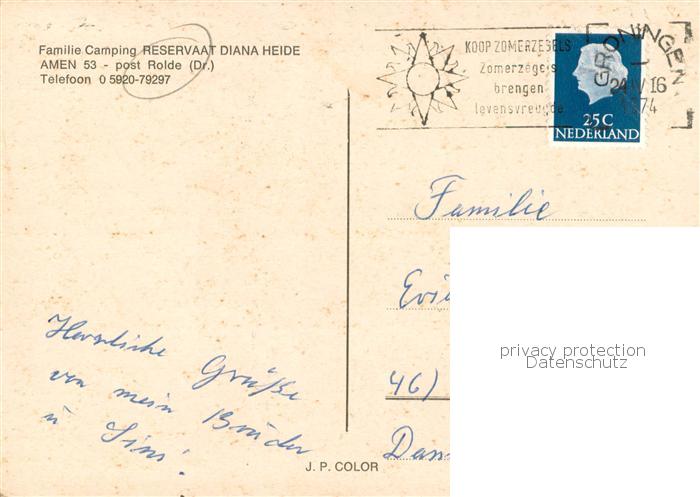 Familie Camping RESERVAAT DIANA HEIDE
AMEN 53 - post Rolde (Dr.)
Telefoon 0 5920-79297
KOOP ZOMERZEGELS
Zomerzegels
brengen
levensvreugde
GRONINGEN
1974
25 C
NEDERLAND
Familie
46)
Herzliche Grüße
von mein Bruder
u
J. P. COLOR
privacy protection
Datenschutz